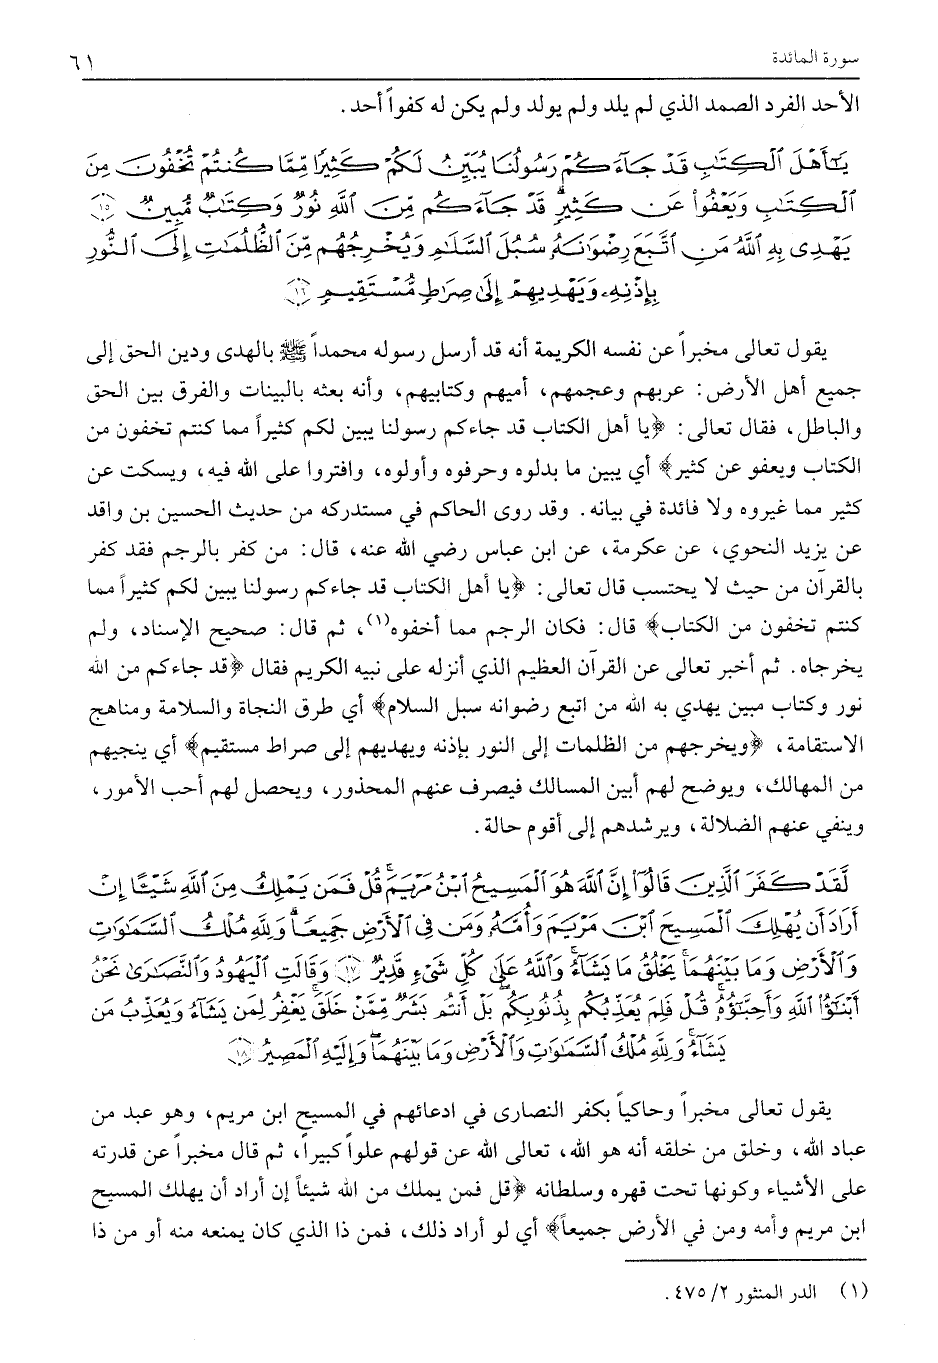 سورة المائدة ٦١
الأحد الفرد الصمد الذي لم يلد ولم يولد ولم يكن له كفواً أحد.
يَٰٓأَهْلَ ٱلْكِتَٰبِ قَدْ جَآءَكُمْ رَسُولُنَا يُبَيِّنُ لَكُمْ كَثِيرًا مِّمَّا كُنتُمْ تُخْفُونَ مِنَ
ٱلْكِتَٰبِ وَيَعْفُوا۟ عَن كَثِيرٍ ۚ قَدْ جَآءَكُم مِّنَ ٱللَّهِ نُورٌ وَكِتَٰبٌ مُّبِينٌ ﴿١٥﴾
يَهْدِى بِهِ ٱللَّهُ مَنِ ٱتَّبَعَ رِضْوَٰنَهُۥ سُبُلَ ٱلسَّلَٰمِ وَيُخْرِجُهُم مِّنَ ٱلظُّلُمَٰتِ إِلَى ٱلنُّورِ
بِإِذْنِهِۦ وَيَهْدِيهِمْ إِلَىٰ صِرَٰطٍ مُّسْتَقِيمٍ ﴿١٦﴾
يقول تعالى مخبراً عن نفسه الكريمة أنه قد أرسل رسوله محمداً ﷺ بالهدى ودين الحق إلى
جميع أهل الأرض: عربهم وعجمهم، أميهم وكتابيهم، وأنه بعثه بالبينات والفرق بين الحق
والباطل، فقال تعالى: ﴿يا أهل الكتاب قد جاءكم رسولنا يبين لكم كثيراً مما كنتم تخفون من
الكتاب ويعفو عن كثير﴾ أي يبين ما بدلوه وحرفوه وأولوه، وافتروا على الله فيه، ويسكت عن
كثير مما غيروه ولا فائدة في بيانه. وقد روى الحاكم في مستدركه من حديث الحسين بن واقد
عن يزيد النحوي، عن عكرمة، عن ابن عباس رضي الله عنه، قال: من كفر بالرجم فقد كفر
بالقرآن من حيث لا يحتسب قال تعالى: ﴿يا أهل الكتاب قد جاءكم رسولنا يبين لكم كثيراً مما
كنتم تخفون من الكتاب﴾ قال: فكان الرجم مما أخفوه(١)، ثم قال: صحيح الإسناد، ولم
يخرجاه. ثم أخبر تعالى عن القرآن العظيم الذي أنزله على نبيه الكريم فقال ﴿قد جاءكم من الله
نور وكتاب مبين يهدي به الله من اتبع رضوانه سبل السلام﴾ أي طرق النجاة والسلامة ومناهج
الاستقامة، ﴿ويخرجهم من الظلمات إلى النور بإذنه ويهديهم إلى صراط مستقيم﴾ أي ينجيهم
من المهالك، ويوضح لهم أبين المسالك فيصرف عنهم المحذور، ويحصل لهم أحب الأمور،
وينفي عنهم الضلالة، ويرشدهم إلى أقوم حالة.
لَّقَدْ كَفَرَ ٱلَّذِينَ قَالُوٓا۟ إِنَّ ٱللَّهَ هُوَ ٱلْمَسِيحُ ٱبْنُ مَرْيَمَ ۚ قُلْ فَمَن يَمْلِكُ مِنَ ٱللَّهِ شَيْـًٔا إِنْ
أَرَادَ أَن يُهْلِكَ ٱلْمَسِيحَ ٱبْنَ مَرْيَمَ وَأُمَّهُۥ وَمَن فِى ٱلْأَرْضِ جَمِيعًا ۗ وَلِلَّهِ مُلْكُ ٱلسَّمَٰوَٰتِ
وَٱلْأَرْضِ وَمَا بَيْنَهُمَا ۚ يَخْلُقُ مَا يَشَآءُ ۚ وَٱللَّهُ عَلَىٰ كُلِّ شَىْءٍ قَدِيرٌ ﴿١٧﴾ وَقَالَتِ ٱلْيَهُودُ وَٱلنَّصَٰرَىٰ نَحْنُ
أَبْنَٰٓؤُا۟ ٱللَّهِ وَأَحِبَّٰٓؤُهُۥ ۚ قُلْ فَلِمَ يُعَذِّبُكُم بِذُنُوبِكُم ۖ بَلْ أَنتُم بَشَرٌ مِّمَّنْ خَلَقَ ۚ يَغْفِرُ لِمَن يَشَآءُ وَيُعَذِّبُ مَن
يَشَآءُ ۚ وَلِلَّهِ مُلْكُ ٱلسَّمَٰوَٰتِ وَٱلْأَرْضِ وَمَا بَيْنَهُمَا ۖ وَإِلَيْهِ ٱلْمَصِيرُ ﴿١٨﴾
يقول تعالى مخبراً وحاكياً بكفر النصارى في ادعائهم في المسيح ابن مريم، وهو عبد من
عباد الله، وخلق من خلقه أنه هو الله، تعالى الله عن قولهم علواً كبيراً، ثم قال مخبراً عن قدرته
على الأشياء وكونها تحت قهره وسلطانه ﴿قل فمن يملك من الله شيئاً إن أراد أن يهلك المسيح
ابن مريم وأمه ومن في الأرض جميعاً﴾ أي لو أراد ذلك، فمن ذا الذي كان يمنعه منه أو من ذا
(١) الدر المنثور ٢/ ٤٧٥.